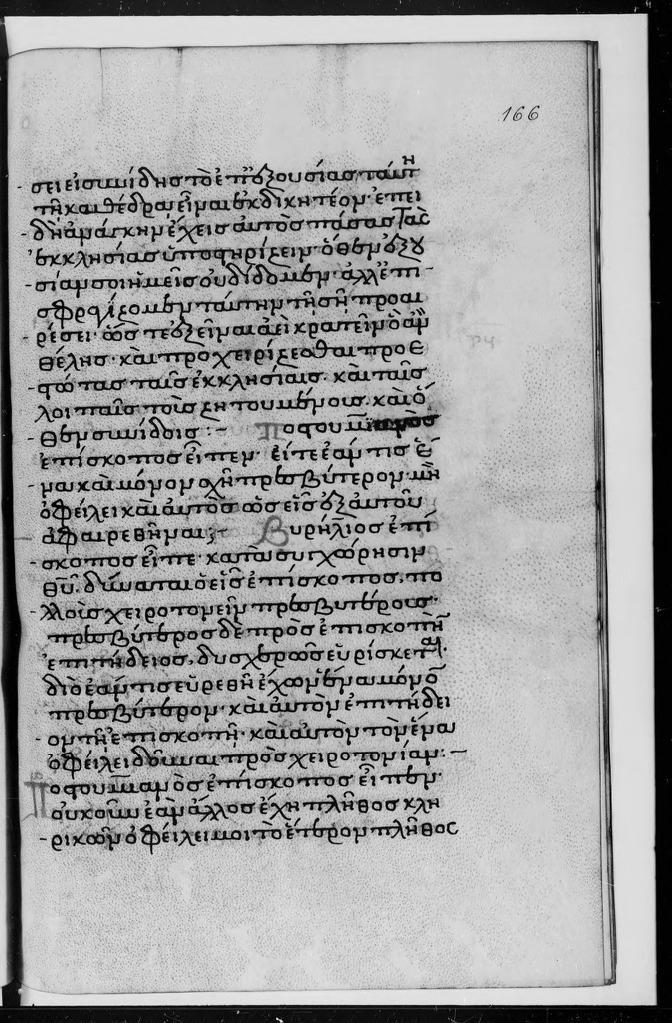 166
σει εἰ συνίδης τὸ ἐπ' ἐξουσίας ταύτη
τῆ καθέδρα εἶναι ἐκδικητέον· ἐπει
δὴ ἀνάγκην ἔχεις αὐτὸς πάσας τὰς
ἐκκλησίας ὑποστηρίζειν· ὅθεν ἐξου
σίαν σοι ἡμεῖς οὐ δίδομεν· ἀλλ' ἐπι
σφραγίζομεν ταύτην τῆ σῆ προαι
ρέσει· ὥστε ἐξεῖναι ἀεὶ κρατεῖν ὃ ἂν
θέλης· καὶ προχειρίζεσθαι προε
στῶτας ταῖς ἐκκλησίαις· καὶ ταῖς
λοιπαῖς τοῖς ζητουμένοις· καὶ ὅ
θεν συνίδοις:
Ποστουμιανὸς
ἐπίσκοπος εἶπεν· εἶτε ἐάν τις ἕ
να καὶ μόνον ἔχη πρεσβύτερον· μὴ
ὀφείλει καὶ αὐτὸς ὡς εἷς ἐξ αὐτοῦ
ἀφαιρεθῆναι;
Αυρήλιος ἐπί
σκοπος εἶπε· κατὰ συγχώρησιν
θυ· δύναται ὁ εἷς ἐπίσκοπος, πο
λλοῖς χειροτονεῖν πρεσβυτέρους·
πρεσβύτερος δὲ πρὸς ἐπισκοπὴν
ἐπιτήδειος, δυσχερῶς εὑρίσκεται
διὸ ἐάν τις εὑρεθῆ ἔχων ἕνα μόνον
πρεσβύτερον· καὶ αὐτὸν ἐπιτήδει
ον τῆ ἐπισκοπῆ· καὶ αὐτὸν τὸν ἕνα
ὀφείλει δοῦναι πρὸς χειροτονίαν:
Ποστουμιανὸς ἐπίσκοπος εἶπεν·
οὐκοῦν ἐὰν ἄλλος ἔχη πλῆθος κλη
ρικῶν ὀφείλει μοι τὸ ἕτερον πλῆθος